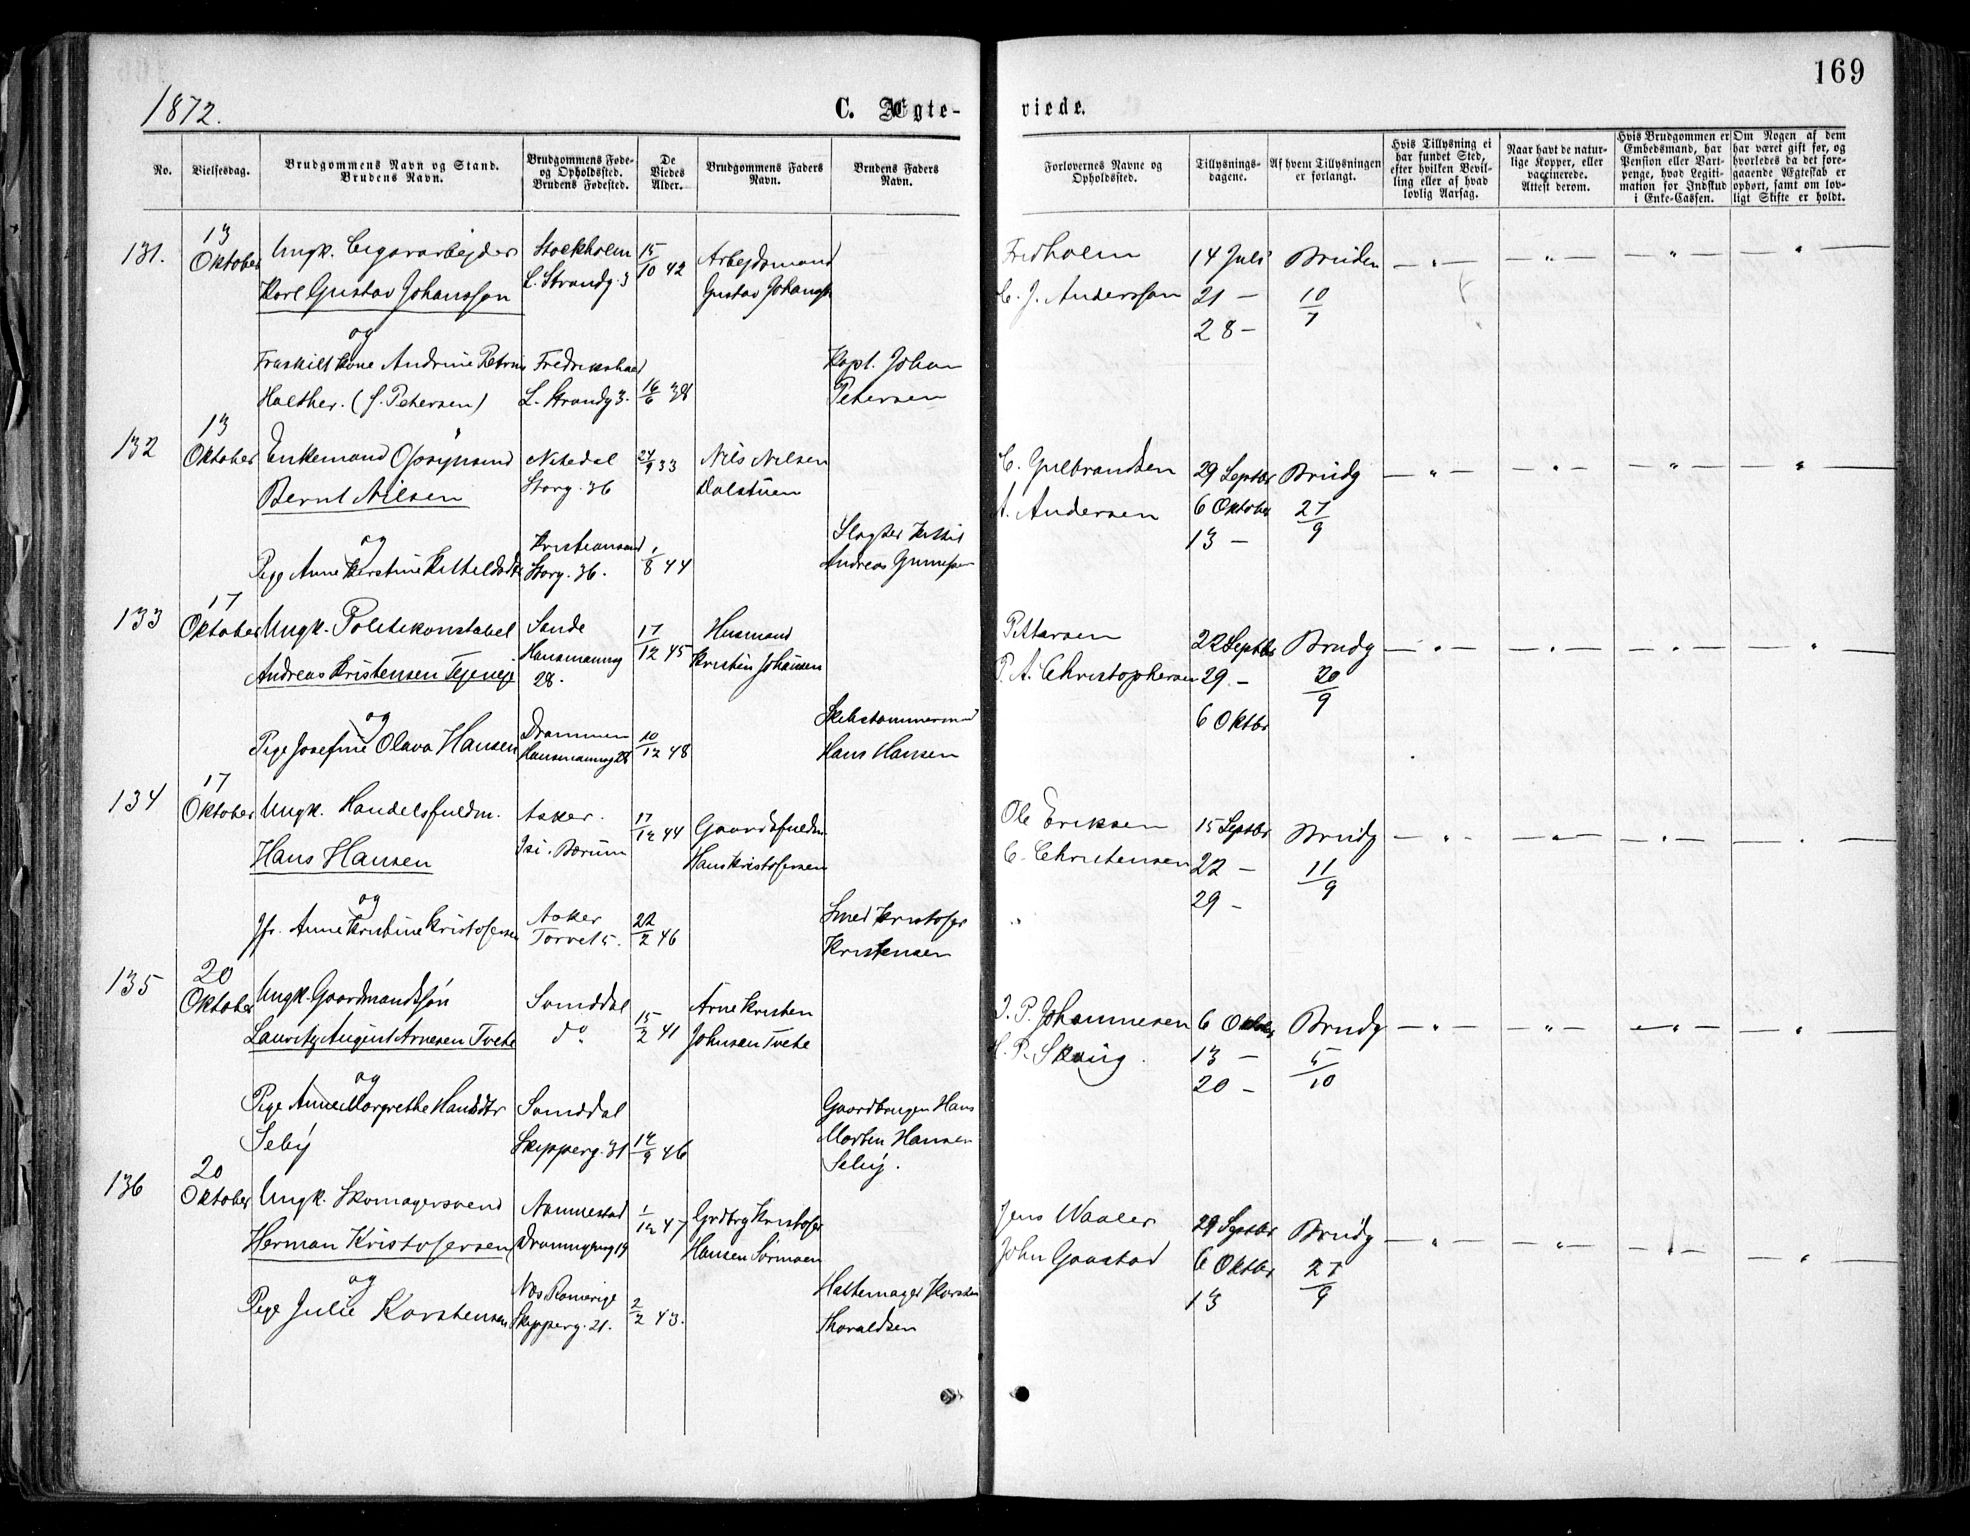 169
1872.
C. Ægte-
viede.
No.
Vielsesdag.
Brudgommens Navn og Stand.
Brudens Navn.
Brudgommens Føde-
og Opholdssted.
Brudens Fødested.
De
Viedes
Alder.
Brudgommens Faders
Navn.
Brudens Faders
Navn.
Forlovernes Navne og
Opholdssted.
Tillysnings-
dagene.
Af hvem Tillysningen
er forlangt.
Hvis Tillysning ei
har fundet Sted,
efter hvilken Bevil-
ling eller af hvad
lovlig Aarsag.
Naar havt de natur-
lige Kopper, eller
vaccinerede.
Attest derom.
Hvis Brudgommen er
Embedsmand, har
Pension eller Vart-
penge, hvad Legiti-
mation for Indskud
i Enke-Cassen.
Om Nogen af dem
har været gift før, og
hvorledes da det fore-
gaaende Ægteskab er
ophørt, samt om lov-
ligt Skifte er holdt.
131.
13
Oktober
Ungk. Cigararbejder
Karl Gustav Johansson
og
Fraskilt Kone Andrine
Holther. (f. Petersen)
Stockholm
L. Strandg. 3
Fredrikshald
L. Strandg 3.
15/10 42
16/6 38
Arbejdsmand
Gustav
Kapt. Johan
Petersen
Fredholm
C. J. Andersson
14 Juli
21 —
28 —
Bruden
10/7
132
13
Oktober
Enkemand
Bernt Nilsen
og
Pige Anne Kerstine
Nitedal
Storg. 36
Kristiansand
Storg. 36.
24/9 33
1/8 44
Nils Nilsen
Dalstuen
Slagter
Andreas
C. Gulbrandsen
A. Andersen
29 Septbr
6 Oktober
13 —
Brudg
27/9
133
17
Oktober
Ungk. Politikonstabel
Andreas Kristensen
og
Pige Josefine Olava Hansen
Sande
Hausmannsg
28.
Drammen
Hausmannsg 28
17/12 45
10/12 48
Husmand
Kristen Johansen
Skibstømmermand
Hans Hansen
Pettersen
P. A. Christophersen
22 Septbr
29. —
6 Oktbr
Brudg
20/9
134
17
Oktober
Ungk. Handelsfuldm.
Hans Hansen
og
Jfr. Anne Kristine Kristofersen
Asker.
I Bærum
Asker
Torvet 5.
17/12 44
22/2 46
Gaardsfuldm
Hans Kristofersen
Smed Kristofer
Kristensen
Ole Eriksen
C. Christensen
15 Septbr
22 —
29 —
Brudg
11/9
135
20
Oktober
Ungk. Gaardmandssøn
Lauritz August Arnesen Tvete
og
Pige Anne Margrethe Hansdtr
Seby
Sanddal
do
Sanddal
Skipperg. 31
15/2 41
12/9 46
Arne Kristen
Johnsen Tvete
Gaardbruger Hans
Martin Hansen
Seby.
J. P. Johannesen
H. P. Skaug.
6 Oktober
13 —
20 —
Brudg
5/10
136
20
Oktober
Ungk. Skomagersvend
Herman Kristofersen
og
Pige Julie Karstensen
Nannestad
19
Nes Romerige
Skipperg. 21.
1/12 47
2/2 43.
Grdbrg Kristofer
Hansen
Hattemager Karsten
Thoraldsen
Jens Waaler
John Gaastad
29 Septbr
6 Oktbr
13
Brudg
27/9